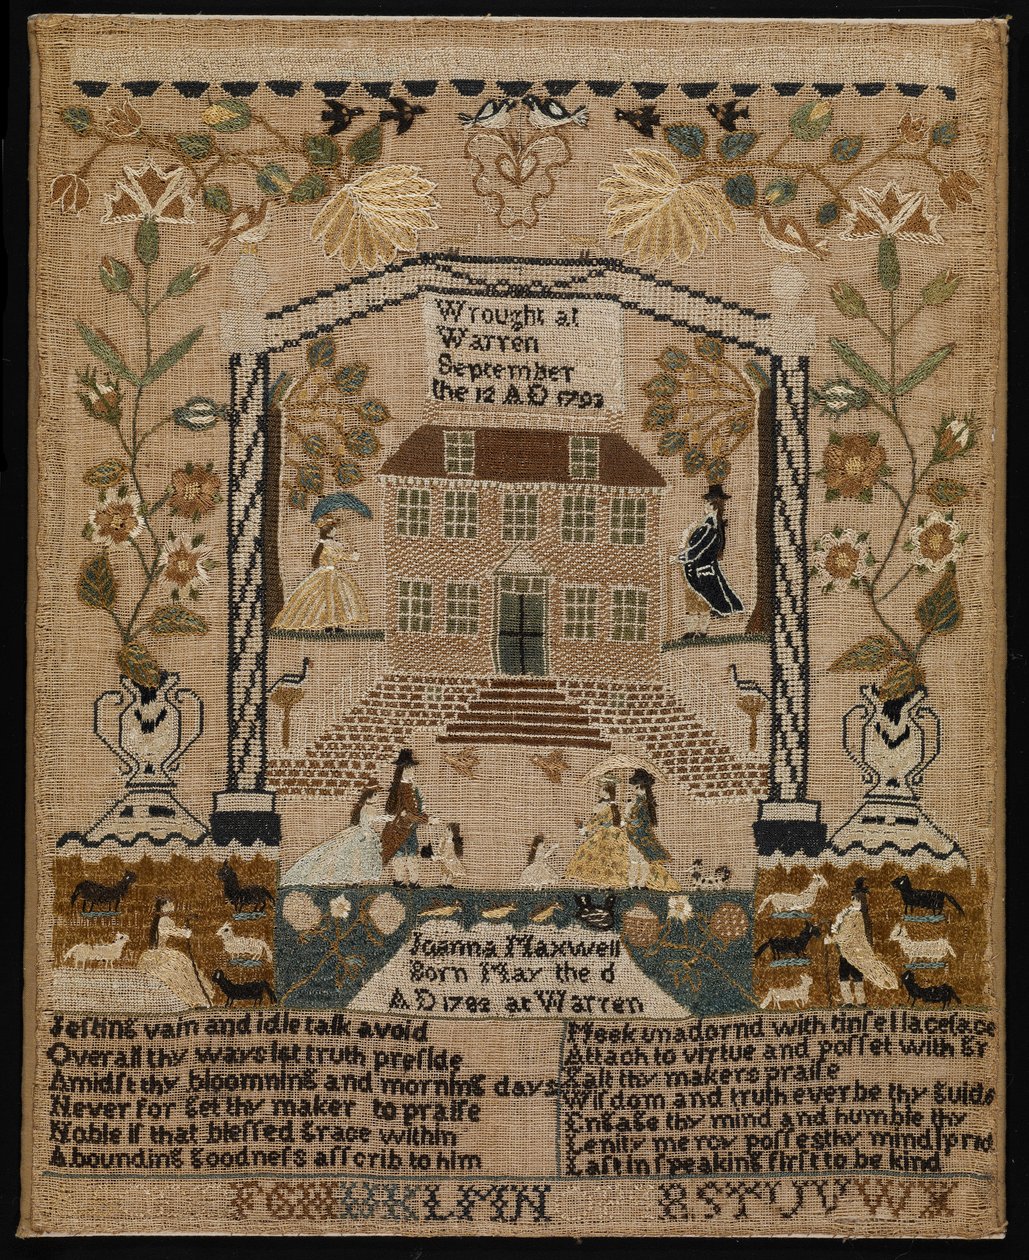 Wrought at
Warren
September
the 12 A D 1793
Joanna Maxwell
Born May the d
A D 1782 at Warren
Jesting vain and idle talk avoid
Over all thy ways let truth preside
Amidst thy bloomning and morning days
Never for get thy maker to praise
Noble if that blessed grace within
Abounding goodness asscrib to him
Meek unadornd with tinsel lace
Attach to virtue and posset with gr
Xalt thy makers praise
Wisdom and truth ever be thy guide
Engage thy mind and humble thy
Lenity mercy possesthy mind
Last in speaking first to be kind
F G H I K L M N R S T U V W X